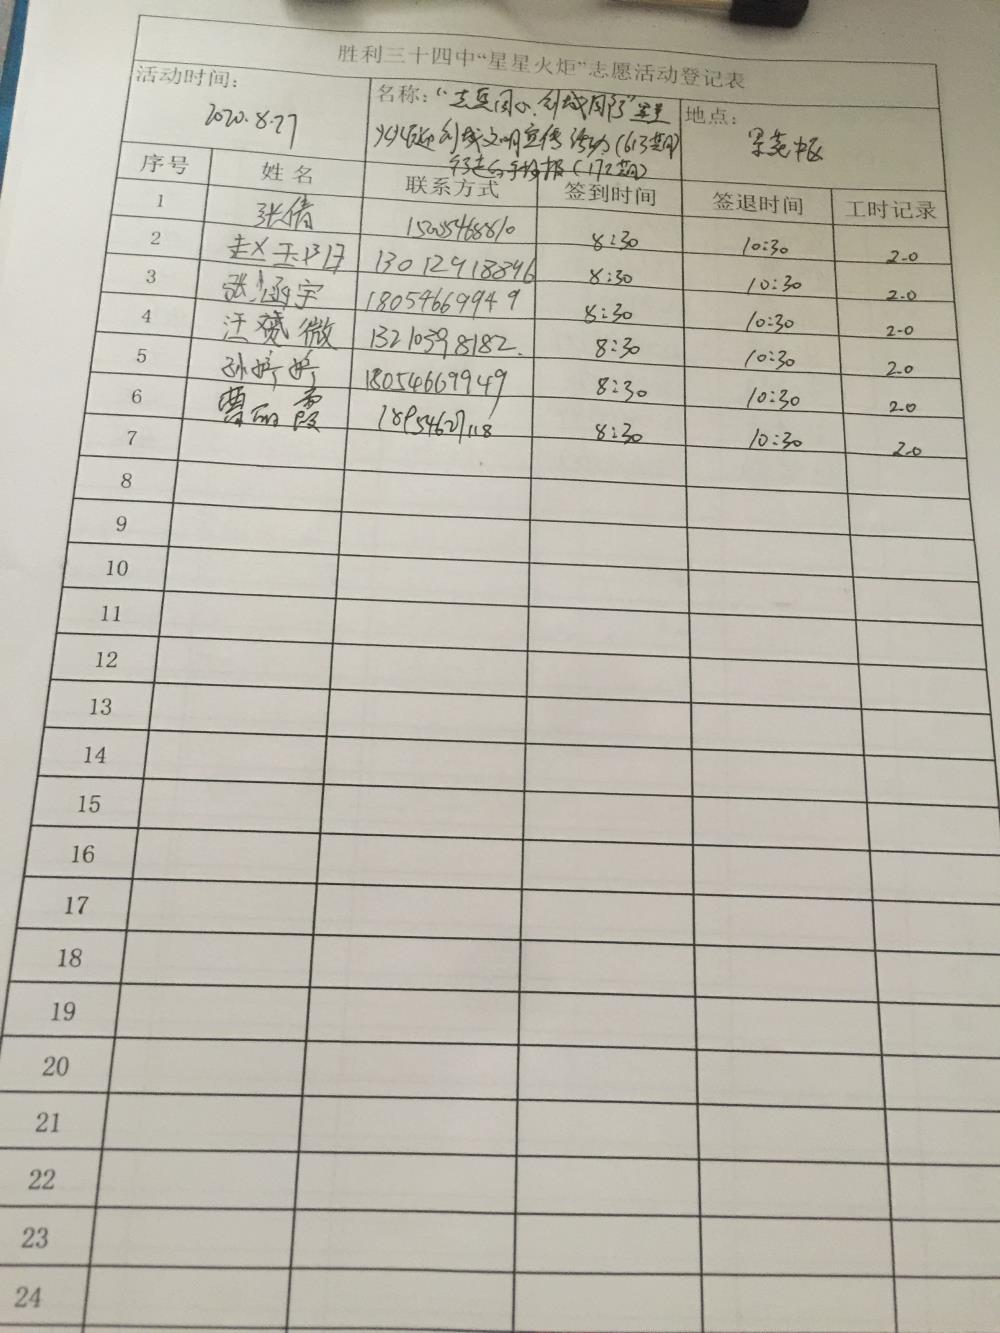 胜利三十四中“星星火炬”志愿活动登记表
活动时间： 名称： 地点：
2020.8.27
火炬 创城文明宣传活动（613期）
手抄报（172期）
序号 姓名 联系方式 签到时间 签退时间 工时记录
1 张倩 8:30 10:30 2.0
2 赵玉 13012918896 8:30 10:30 2.0
3 张涵宇 18054669949 8:30 10:30 2.0
4 汪 微 13210398182 8:30 10:30 2.0
5 孙婷婷 18054669949 8:30 10:30 2.0
6 曹丽霞 8:30 10:30 2.0
7
8
9
10
11
12
13
14
15
16
17
18
19
20
21
22
23
24